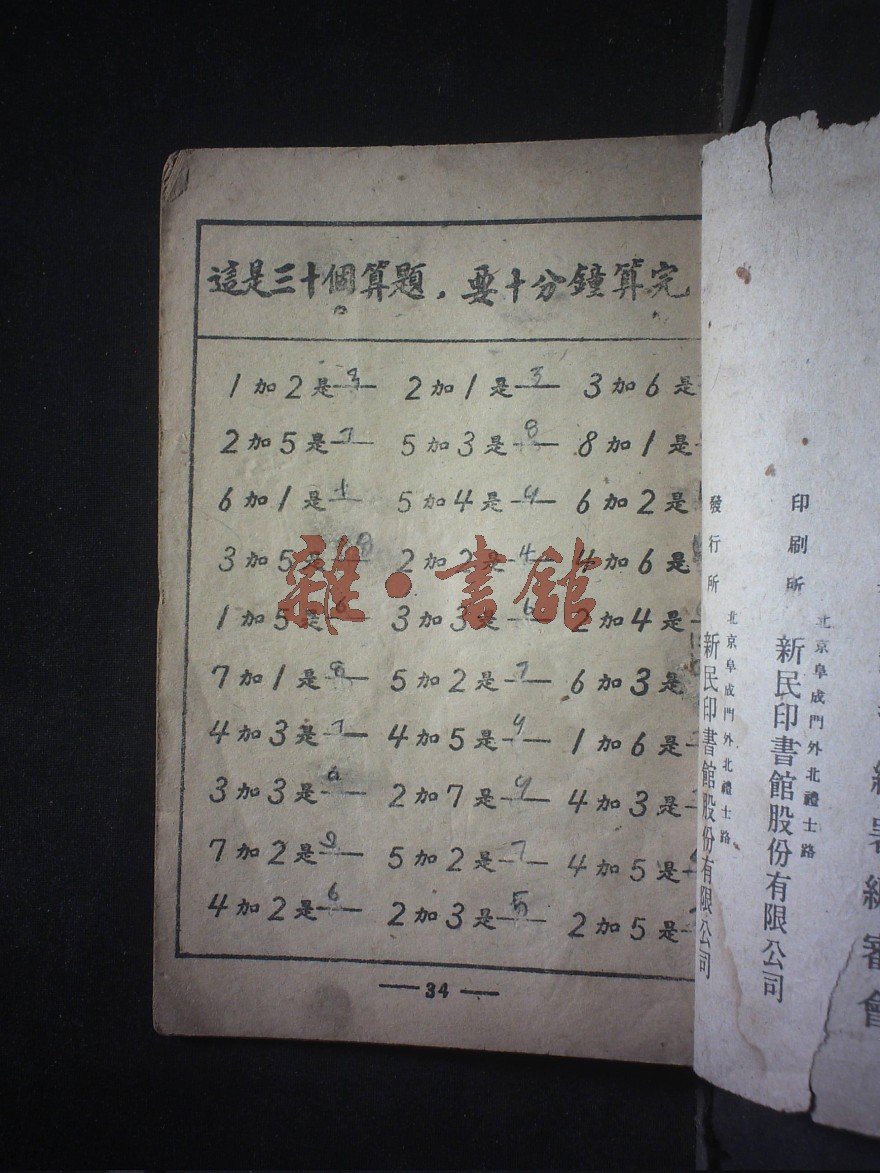 這是三十個算題，要十分鐘算完
1加2是3 2加1是3 3加6是
2加5是7 5加3是8 8加1是
6加1是 5加4是9 6加2是
3加5是8 2加2是4 4加6是
1加5是6 3加3是6 2加4是
7加1是8 5加2是7 6加3是
4加3是7 4加5是9 1加6是
3加3是6 2加7是9 4加3是
7加2是9 5加2是7 4加5是
4加2是6 2加3是5 2加5是
34
雜·書館
印刷所 北京阜成門外北禮士路
新民印書館股份有限公司
發行所 北京阜成門外北禮士路
新民印書館股份有限公司
總署編審會